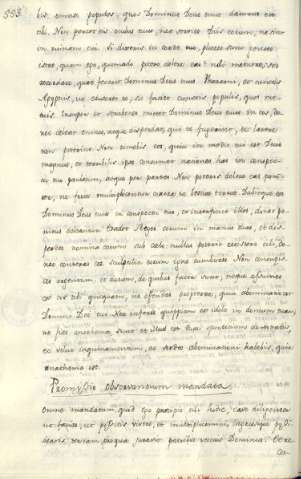 bis omnes populos, quos Dominus Deus tuus daturus est
tibi. Non parcet eis oculus tuus, nec servies Diis eorum, ne sint in
ruinam tui. Si dixeris in corde tuo, plures sunt gentes
istae, quam ego, quomodo potero delere eas? noli metuere, sed
recordare, quae fecerit Dominus Deus tuus Pharaoni, et cunctis
Aegyptiis, sic faciet cunctis populis, quos me-
tuis. Insuper et crabrones mittet Dominus Deus tuus in eos, do-
nec deleat omnes, atque disperdat, qui te fugerint, et latere
potuerint. Non timebis eos, quia in medio tui est Deus
magnus, et terribilis ipse consumet nationes has in conspec-
tu tuo paulatim, atque per partes Non poteris delere eas pari-
ter, ne forte multiplicentur contra te bestiae terrae. Dabitque eos
Dominus Deus tuus in conspectu tuo, et interficiet illos, donec pe-
nitus deleantur tradet Reges eorum in manus tuas, et dis-
perdes nomina eorum sub caelo: nullus poterit resistere tibi, do-
nec conteras eos sculptilia eorum igne combures Non concupis-
ces argentum, et aurum, de quibus facta sunt, neque assumes
ex eis tibi quidquam, ne offendas propterea, quia abominatio est
Domini Dei tui Nec inferes quippiam ex idolo in domum tuam,
ne fias anathema, sicut et illud est
et velut inquinamentum, ac sordes abominationi habebis, quia
anathema est
Promissio observantium mandata
Omne mandatum, quod ego praecipio tibi hodie, cave diligenter
ut facias, ut possitis vivere, et multiplicemini, ingressique possi-
deatis terram, pro qua juravit patribus vestris Dominus. Et re
cor-